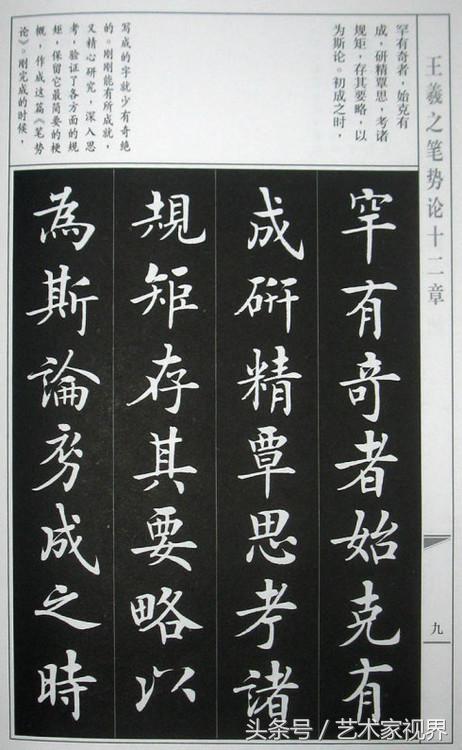 王羲之笔势论十二章
罕有奇者，始克有
成，研精覃思，考诸
规矩，存其要略，以
为斯论。初成之时，
写成的字就少有奇绝
的。刚刚能有所成就，
又精心研究，深入思
考，验证了各方面的规
矩，保留它最简要的梗
概，作成这篇《笔势
论》。刚完成的时候，
罕有奇者始克有
成研精覃思考諸
規矩存其要略以
為斯論成之時
九
头条号/艺术家视界